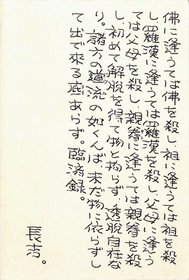 佛に逢うては佛を殺し、祖に逢うては祖を殺
し、羅漢に逢うては羅漢を殺し、父母に逢う
ては父母を殺し、親眷に逢うては親眷を殺
し、初めて解脱を得て物と拘らず、透脱自在な
り。諸方の道流の如くんば、未だ物に依らずし
て出で来る底あらず。臨済録。
長吉。